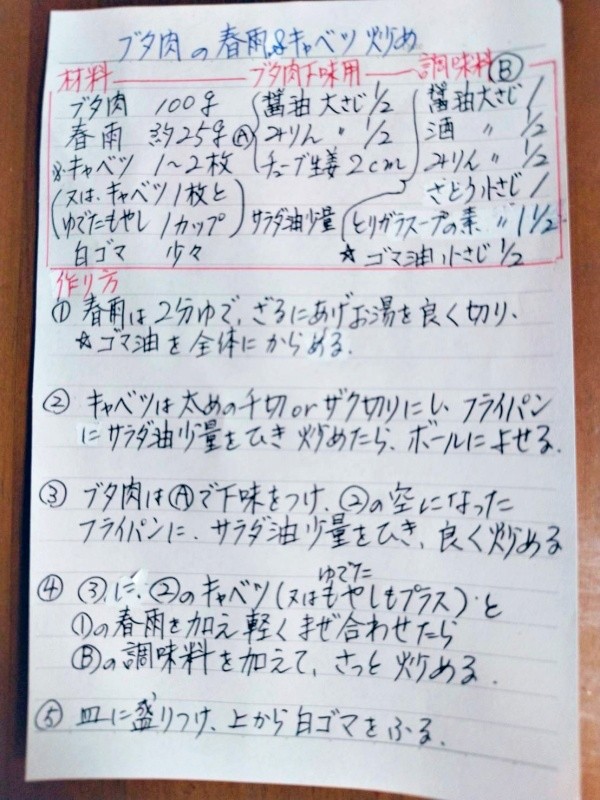 ブタ肉の春雨&キャベツ炒め
材料 ブタ肉下味用 調味料Ⓑ
ブタ肉 100g 醤油 大さじ 1/2 醤油大さじ 1
春雨 約25g Ⓐ みりん 〃 1/2 酒 〃 1/2
※キャベツ 1〜2枚 チューブ生姜 2cm みりん 〃 1/2
(又は、キャベツ1枚と さとう小さじ 1
ゆでたもやし 1カップ) サラダ油少量 とりガラスープの素 〃 1 1/2
白ゴマ 少々 ☆ゴマ油 小さじ 1/2
作り方
① 春雨は2分ゆで、ざるにあげお湯を良く切り、
☆ゴマ油を全体にからめる。
② キャベツは太めの千切orザク切りにし、フライパン
にサラダ油少量をひき炒めたら、ボールによせる。
③ ブタ肉はⒶで下味をつけ、②の空になった
フライパンに、サラダ油少量をひき、良く炒める
④ ③に、②のキャベツ(又はゆでたもやしもプラス)と
①の春雨を加え軽くまぜ合わせたら
Ⓑの調味料を加えて、さっと炒める。
⑤ 皿に盛りつけ、上から白ゴマをふる。